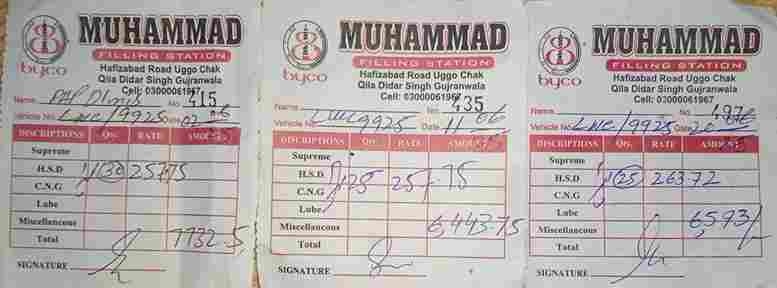 MUHAMMAD
FILLING STATION
byco
Hafizabad Road Uggo Chak
Qila Didar Singh Gujranwala
Cell: 03000061967
Name No. 415
Vehicle No. LWC/9925 Date 02 06
DISCRIPTIONS Qty. RATE AMOUNT
Supreme
H.S.D 30 257.75
C.N.G
Lube
Miscellaneous
Total 7732.5
SIGNATURE
MUHAMMAD
FILLING STATION
byco
Hafizabad Road Uggo Chak
Qila Didar Singh Gujranwala
Cell: 03000061967
Name No. 435
Vehicle No. 9925 Date 11 06
DISCRIPTIONS Qty. RATE AMOUNT
Supreme
H.S.D 25 257.75
C.N.G
Lube
Miscellaneous 6,443.75
Total
SIGNATURE
MUHAMMAD
FILLING STATION
byco
Hafizabad Road Uggo Chak
Qila Didar Singh Gujranwala
Cell: 03000061967
Name No.
Vehicle No. LWC/9925 Date 20
DISCRIPTIONS Qty. RATE AMOUNT
Supreme
H.S.D 25 263.72
C.N.G
Lube 6593/
Miscellaneous
Total
SIGNATURE